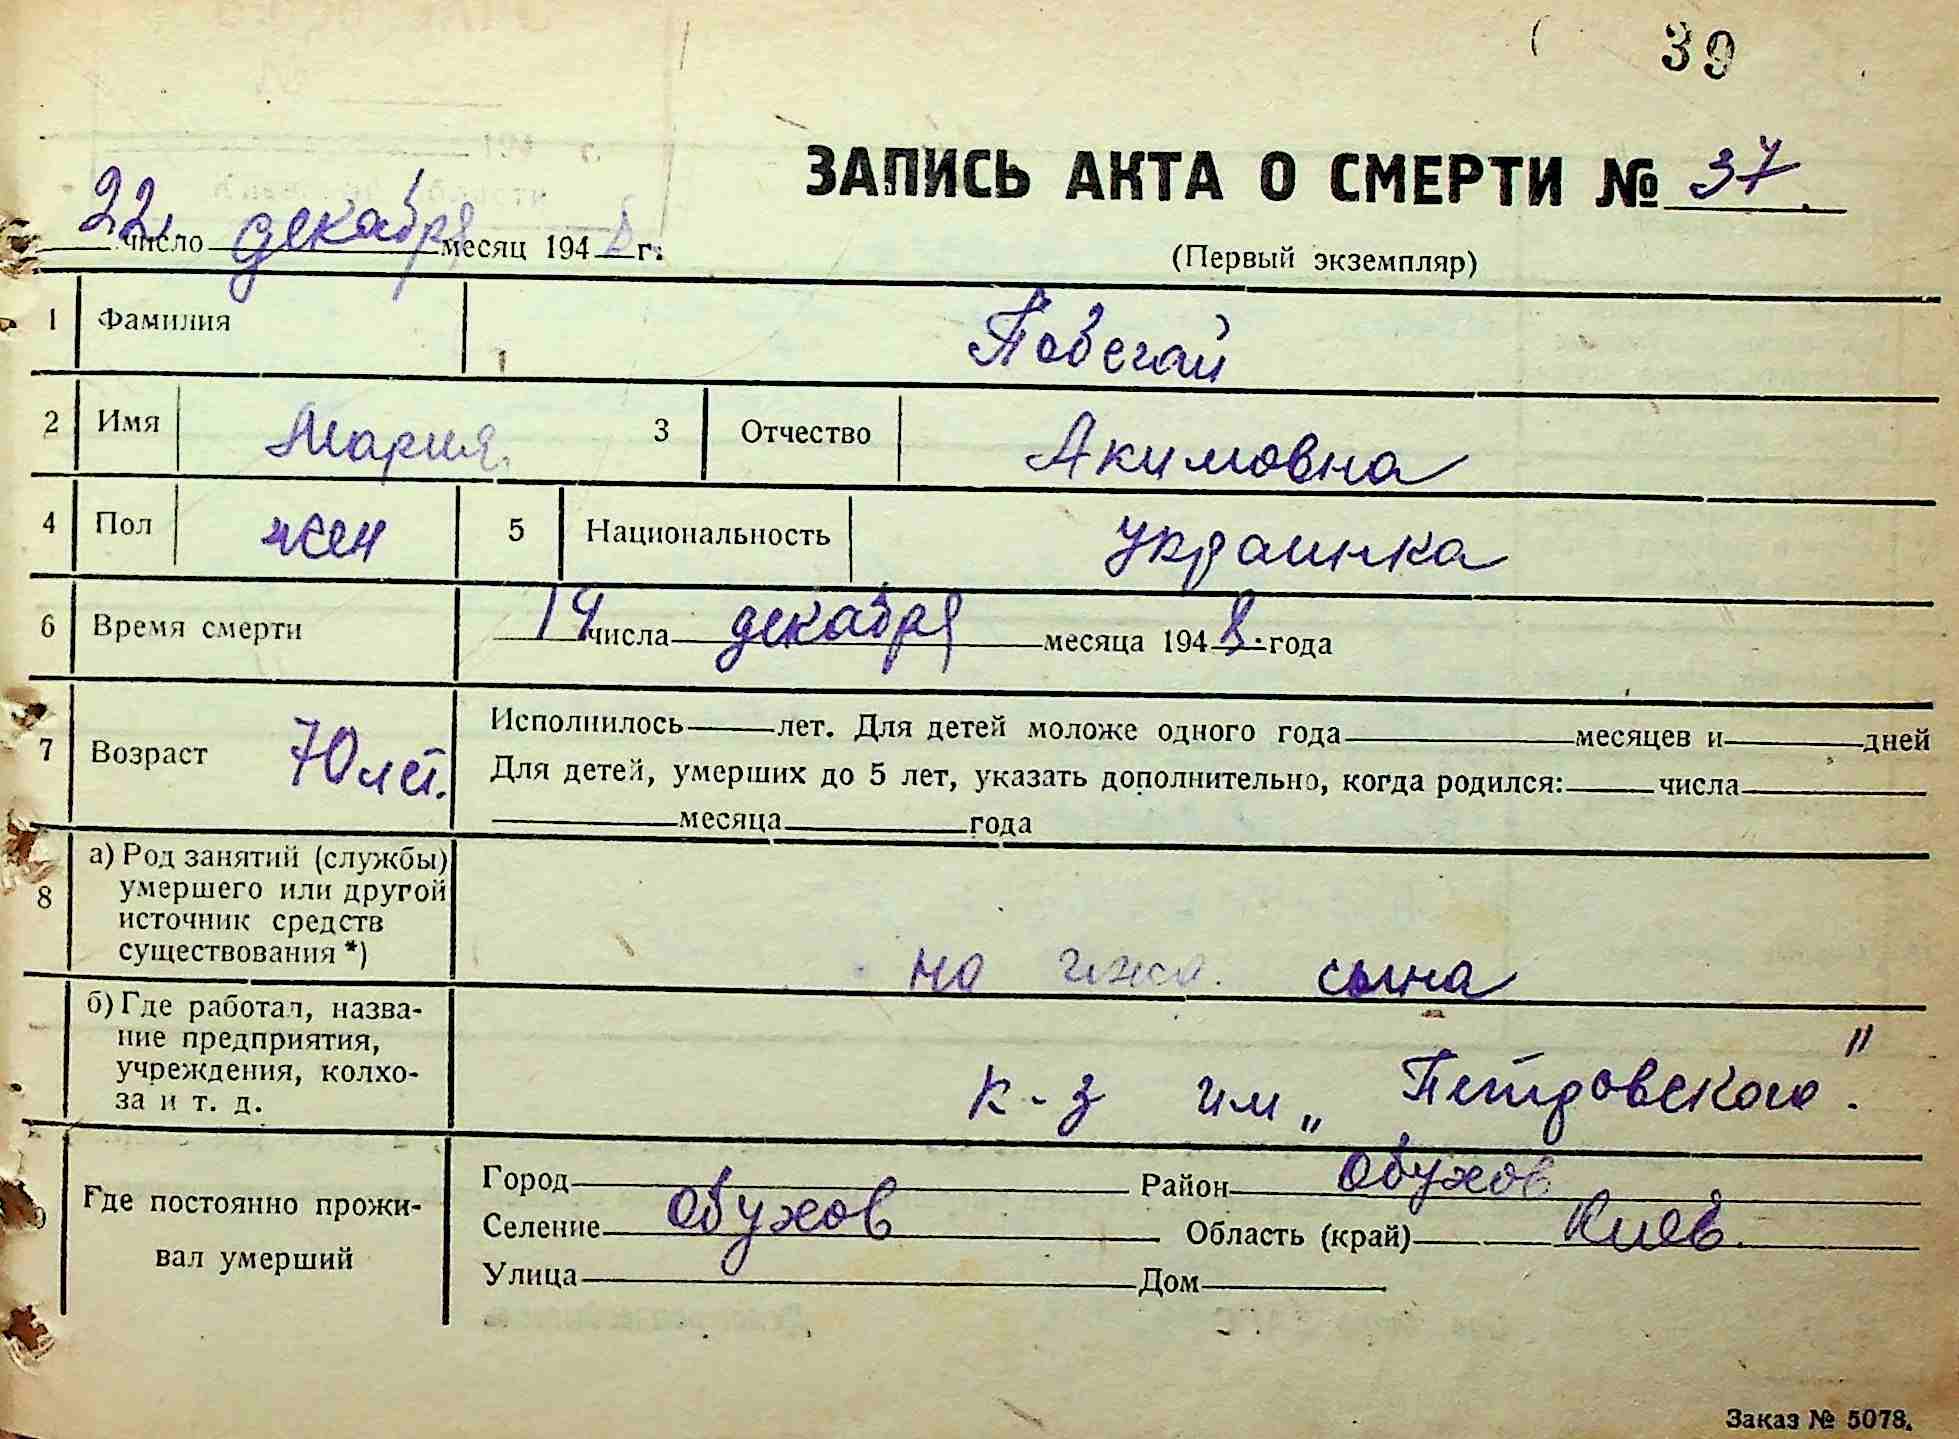 39
ЗАПИСЬ АКТА О СМЕРТИ № 37.
22 число декабря месяц 1948 г.
(Первый экземпляр)
1 Фамилия Повегай
2 Имя Мария 3 Отчество Акимовна
4 Пол жен 5 Национальность украинка
6 Время смерти 14 числа декабря месяца 1948 года
7 Возраст 70 лет. Исполнилось лет. Для детей моложе одного года месяцев и дней
Для детей, умерших до 5 лет, указать дополнительно, когда родился: числа
месяца года
8 а) Род занятий (службы)
умершего или другой
источник средств
существования *)
на иж. сына
б) Где работал, назва-
ние предприятия,
учреждения, колхо-
за и т. д.
к-з им „Петровского".
9 Где постоянно прожи-
вал умерший
Город Район Обухов
Селение Обухов Область (край) Киев.
Улица Дом
Заказ № 5078.